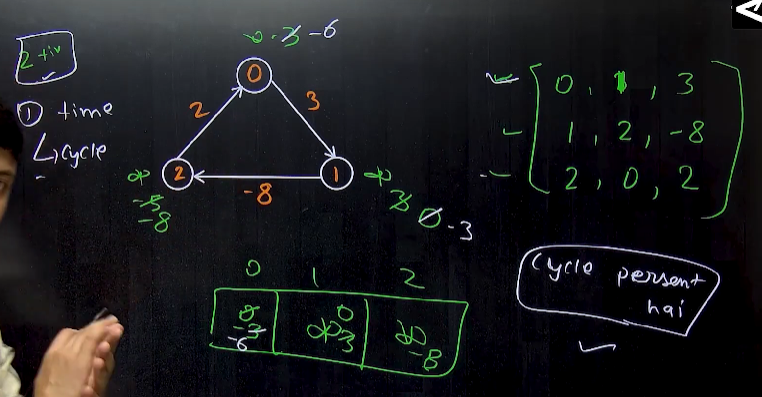 2 +iv
① time
↳ cycle
∞ 3 -6
0
2
3
2
1
-8
∞
-5
-8
∞
3
0 -3
0, 1, 3
1, 2, -8
2, 0, 2
0 1 2
-3
-6
0
∞ 3
∞
-8
Cycle persent
hai